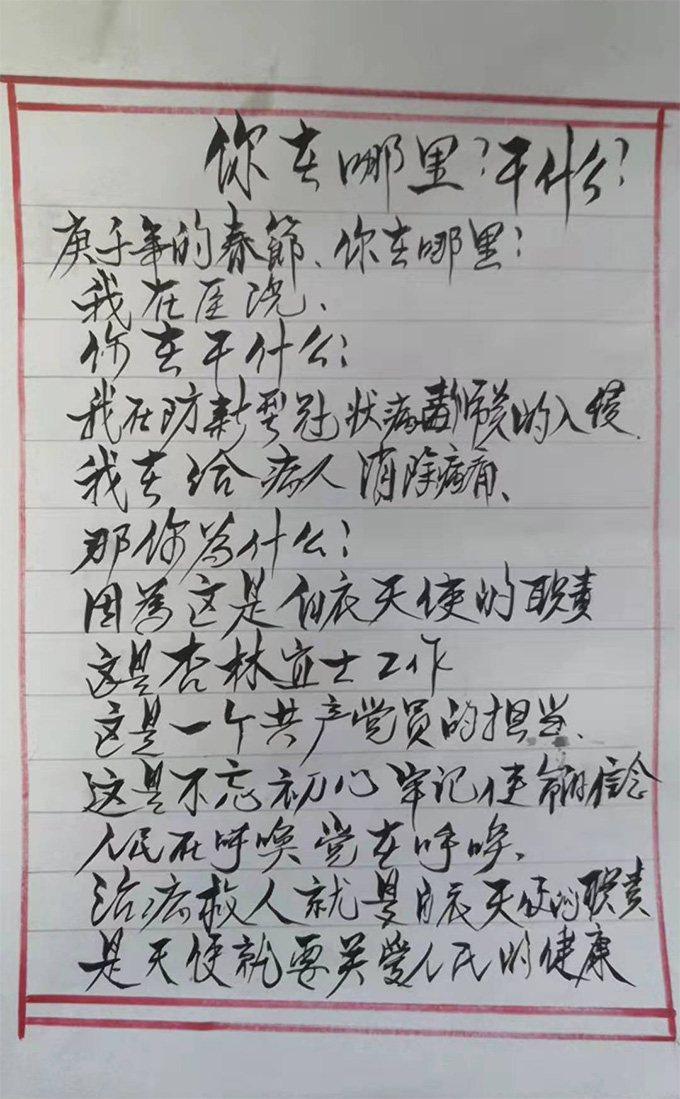 你在哪里?干什么?
庚子年的春節、你在哪里?
我在医院、
你在干什么?
我在防新型冠状病毒肺炎的入侵.
我在给病人消除病痛、
那你為什么?
因為这是白衣天使的职责
这是杏林宜士工作
这是一个共产党员的担当、
这是不忘初心牢记使命的信念
人民在呼唤党在呼唤、
治病救人就是白衣天使的职责
是天使就要关爱人民的健康